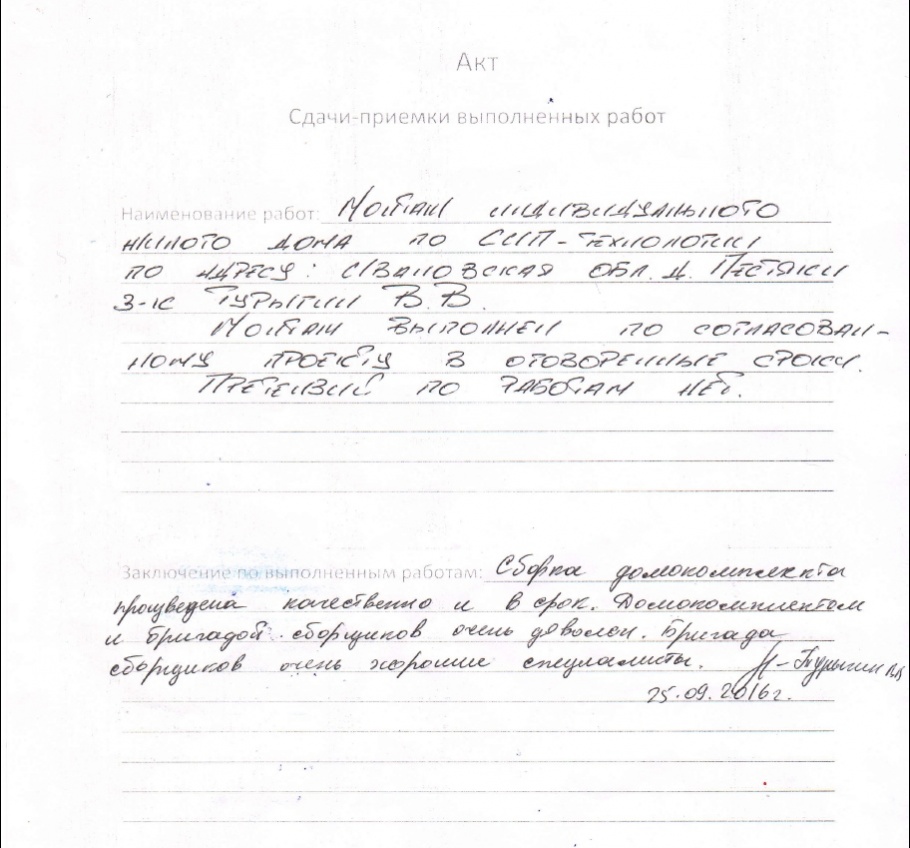 Акт
Сдачи-приемки выполненных работ
Наименование работ: Монтаж индивидуального
жилого дома по СИП-технологии
по адресу: Ивановская обл. д. Пестяки
З-к Турыгин В.В.
Монтаж выполнен по согласован-
ному проекту в оговоренные сроки.
Претензий по работам нет.
Заключение по выполненным работам: Сборка домокомплекта
произведена качественно и в срок. Домокомплектом
и бригадой сборщиков очень доволен. Бригада
сборщиков очень хорошие специалисты. Турыгин ВВ
25.09.2016г.